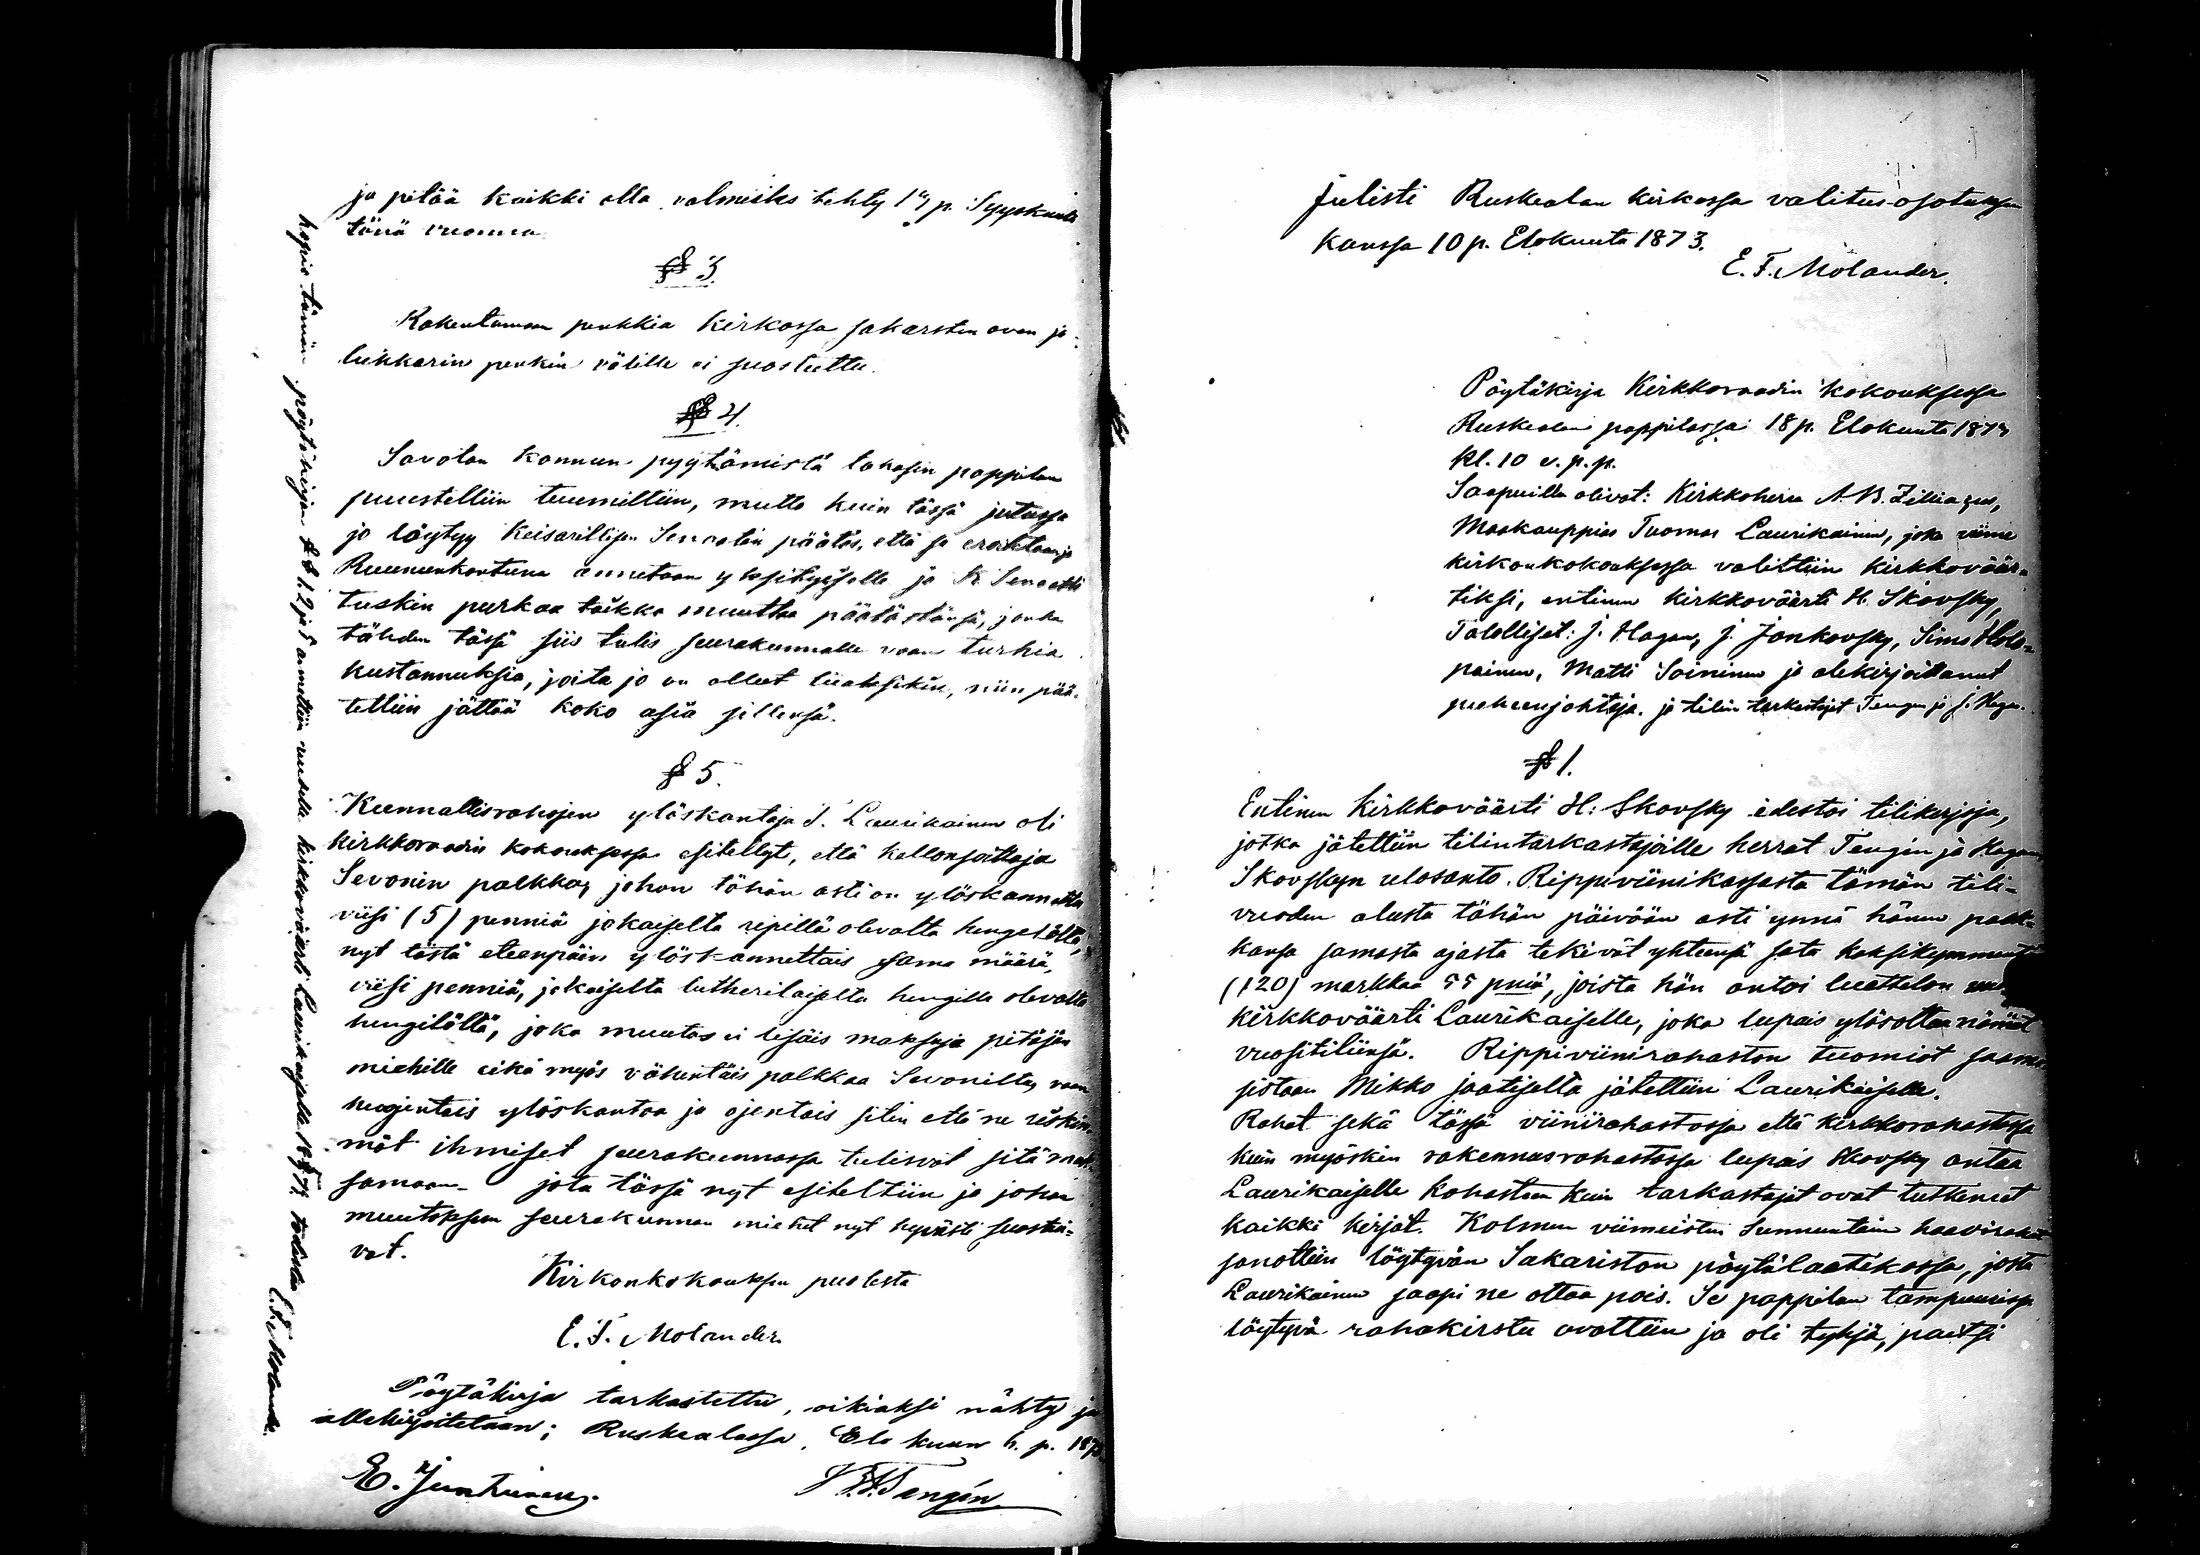 ja pitää kaikki olla valmiiks tehty 1 p. Syyskuuta
tänä vuonna
§ 3.
Rakentamaan penkkiä Kirkossa sakarsten oven ja
lukkarin penkin välille ei suostuttu.
§ 4.
Savolan konnun pyytämistä takasin pappilan
puustelliin tuumittiin, mutta kuin tässä jutussa
jo löytyy Keisarillisen Senaatin päätös, että se eroitetaan ja
Ruununkontuna annetaan yksityiselle ja K. Senaatti
tuskin purkaa taikka muuttaa päätöstänsä, jonka
tähden tässä siis tulis seurakunnalle vaan turhia
kustannuksia, joita jo on olleet liiaksikin, niin pää-
tettiin jättää koko asia sillensä.
§ 5.
Kunnallisrahojen ylöskantaja T. Laurikainen oli
kirkkoraadin kokouksessa esitellyt, että kellonsoittaja
Sevonin palkkaa, johon tähän asti on ylöskannettu
viisi (5) penniä jokaiselta ripillä olevalta hengeltä,
nyt tästä eteenpäin ylöskannettais sama määrä,
viisi penniä, jokaiselta lutherilaiselta hengille olevalta
hengiltältä, joka muutos ei lisäis maksuja pitäjän
miehille eikä myös vähentäis palkkaa Sevonilta, vaan
huojentais ylöskantoa ja ojentais sitin että ne
mät ihmiset seurakunnassa tulisivat sitä mak-
samaan_ jota tässä nyt esiteltiin ja johon
muutoksen seurakunnan miehet nyt hyvästi suostui-
vat.
Kirkonkokouksen puolesta
E. F. Molander
Pöytäkirja tarkastettu, oikiaksi nähty ja
allekirjoitetaan; Ruskealassa, Elo kuun 6. p. 1873
E. Juntunen
Tengén
kopio tämän pöytäkirjan §§ 1, 2 ja 5 annettiin uudelle kirkkoväärti Laurikaiselle 18 todistaa E. F. Molander.
julisti Ruskealan kirkossa valitusosotuksen
kanssa 10 p. Elokuuta 1873.
E. F. Molander.
Pöytäkirja Kirkkoraadin kokouksessa
Ruskealan pappilassa 18 p. Elokuuta 1873
kl. 10 e. p. p.
Saapuilla olivat: Kirkkoherra A. B. Zilliacus,
Maakauppias Tuomas Laurikainen, joka viime
kirkonkokouksessa valittiin kirkkoväär-
tiksi, entinen kirkkoväärti H. Skovsky,
Talolliset: J. Hagan, J. Jankovsky, Simo Holo-
painen, Matti Soininen ja alekirjoittanut
puheenjohtaja. ja tilin tarkastajat Tengen ja J. Hagan.
§ 1.
Entinen Kirkkoväärti H: Skovsky edestoi tilikirjoja,
jotka jätettiin tilintarkastajoille herrat Tengin ja Hagan
Skovskyn ulosanto. Rippiviinikassasta tämän tili-
vuoden alusta tähän päivään asti ynnä hänen palk-
kansa samasta ajasta tekivät yhteensä sata kaksikymmentä
(120) markkaa 55 pniä, joista hän antoi luettelon uud
kirkkoväärti Laurikaiselle, joka lupais ylösottaa nämät
vuositiliinsä. Rippiviinirahaston tuomiot saami-
sistaan Mikko jaatiselta jätettiin Laurikaiselle.
Rahat sekä tässä viinirahastossa että kirkkorahastossa
kuin myöskin rakennusrahastossa lupais Skovsky antaa
Laurikaiselle kohastaan kuin tarkastajat ovat tutkineet
kaikki kirjat. Kolmen viimeisten Sunnuntain haavirahat
sanottiin löytyvän Sakariston pöytälaatikossa, josta
Laurikainen saapi ne ottaa pois. Se pappilan tampuurissa
löytyvä rahakirstu avattiin ja oli tyhjä, paitsi